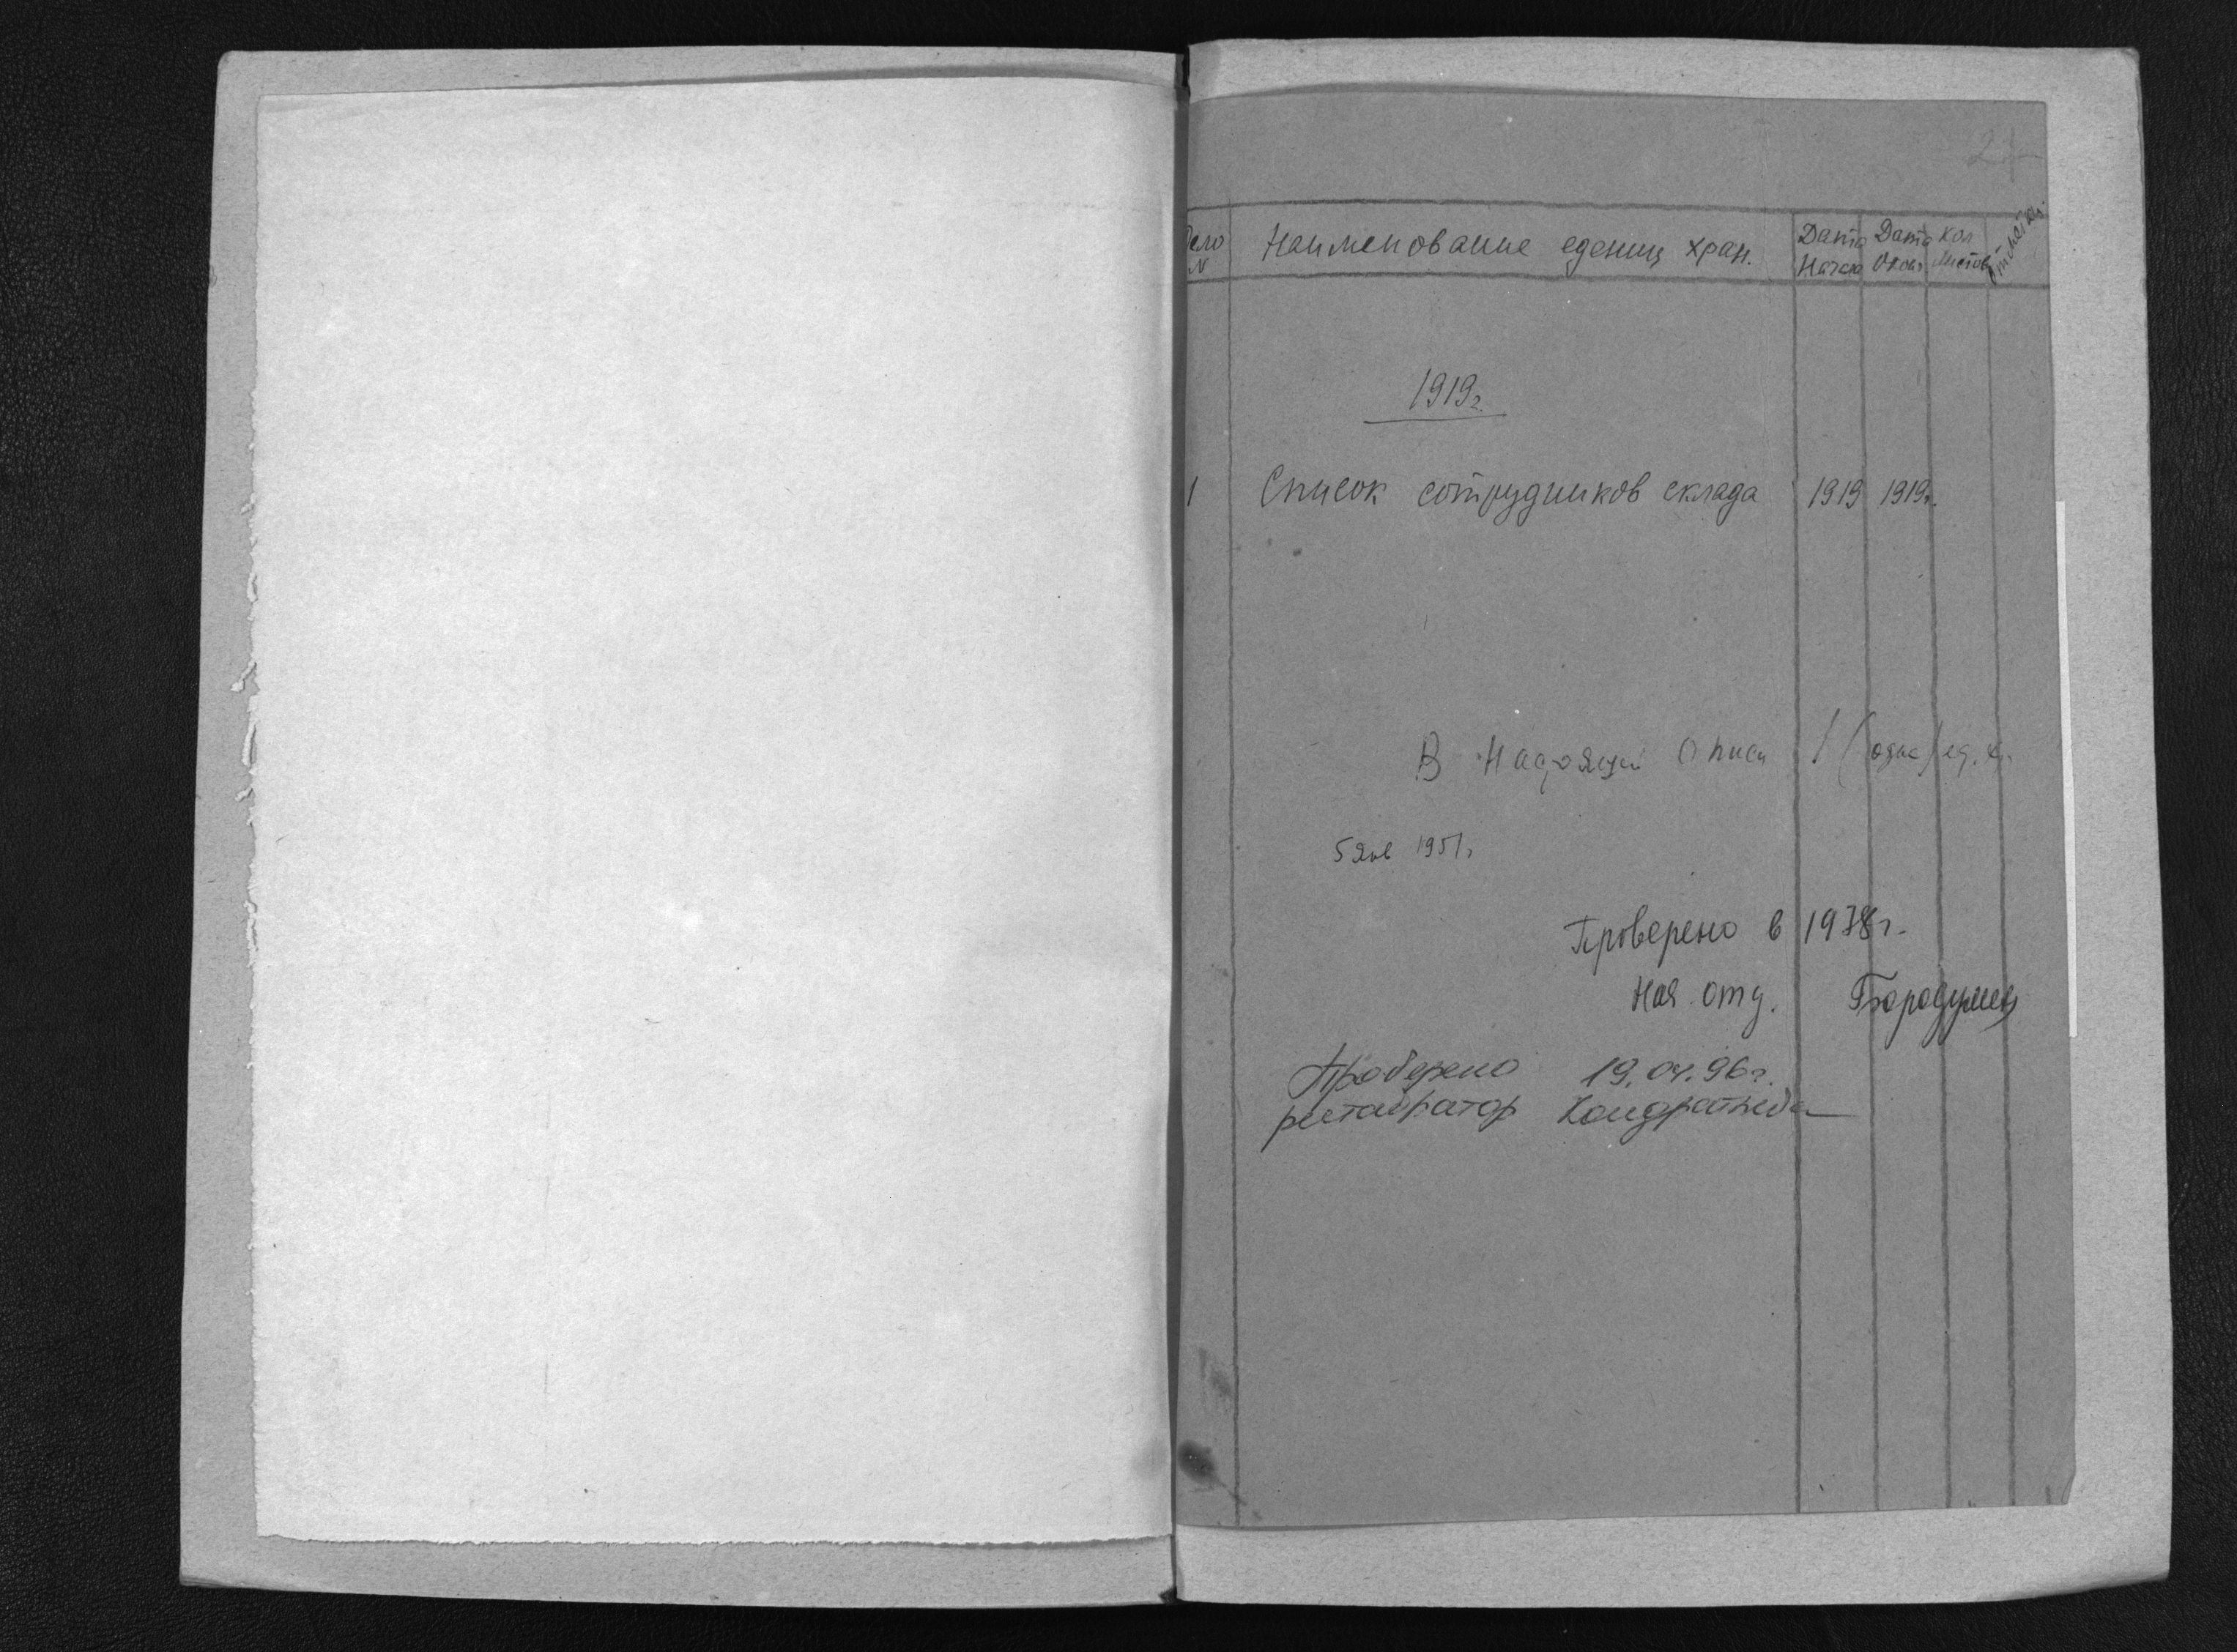 2
Дело Наименование едениц хран. Дата Дата Кол
N Начала Оконч Листов
1919г.
1 Список сотрудников склада 1919 1919г.
В Настоящей Описи 1 (одна) ед. х.
5 Янв 1951г.
Проверено в 1978г.
Нач. отд.
Проверено 19.04.96г.
реставратор Кондратьева